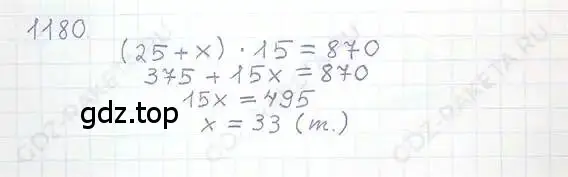 1180
(25 + x) · 15 = 870
375 + 15x = 870
15x = 495
gdz.top
x = 33 (т.)
GDZ-RAKETA.RU